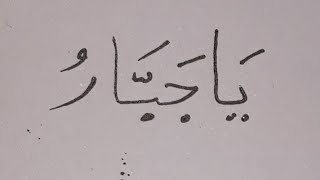 يَا جَبَّارُ